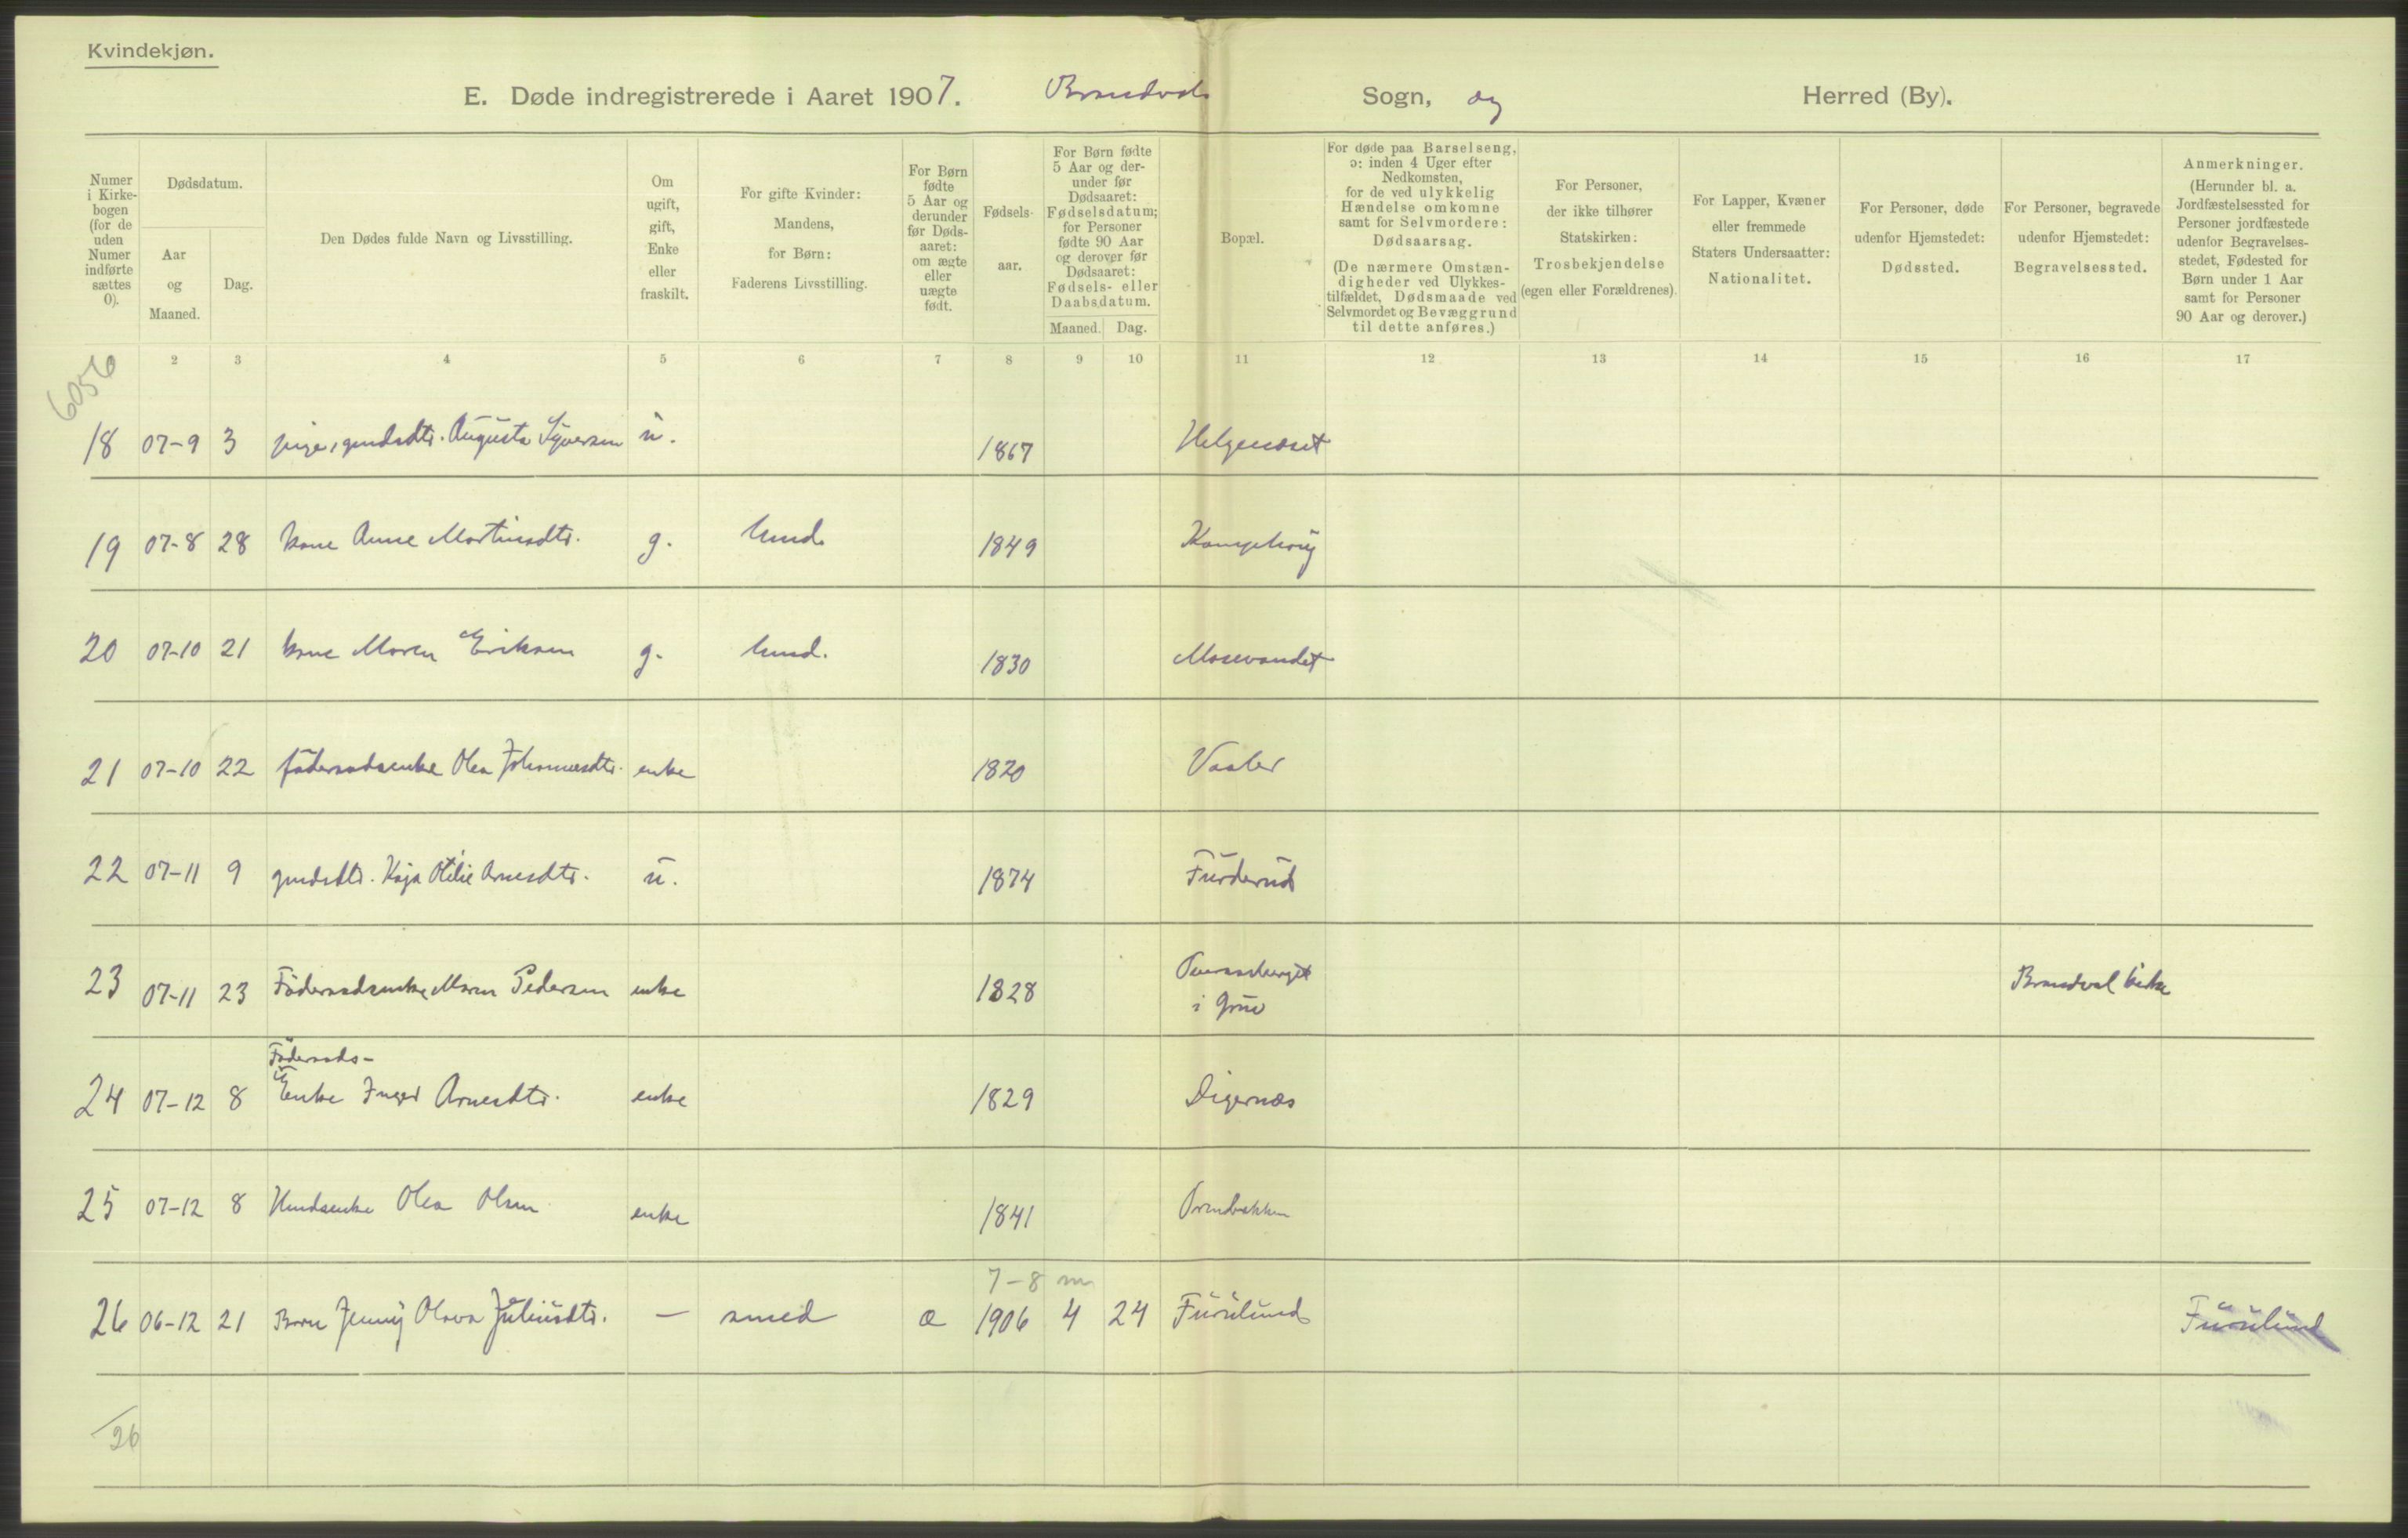 Kvindekjøn.
E. Døde indregistrerede i Aaret 1907. Brandvals Sogn, og Herred (By).
Numer i Kirkebogen (for de uden Numer indførte sættes 0).
Dødsdatum.
Aar og Maaned.
Dag.
Den Dødes fulde Navn og Livsstilling.
Om ugift, gift, Enke eller fraskilt.
For gifte Kvinder: Mandens, for Børn: Faderens Livsstilling.
For Børn fødte 5 Aar og derunder før Dødsaaret: om ægte eller uægte født.
Fødselsaar.
For Børn fødte 5 Aar og derunder før Dødsaaret: Fødselsdatum; for Personer fødte 90 Aar og derover før Dødsaaret: Fødsels- eller Daabsdatum.
Maaned. Dag.
Bopæl.
For døde paa Barselseng, ɔ: inden 4 Uger efter Nedkomsten, for de ved ulykkelig Hændelse omkomne samt for Selvmordere: Dødsaarsag. (De nærmere Omstændigheder ved Ulykkestilfældet, Dødsmaade ved Selvmordet og Bevæggrund til dette anføres.)
For Personer, der ikke tilhører Statskirken: Trosbekjendelse (egen eller Forældrenes).
For Lapper, Kvæner eller fremmede Staters Undersaatter: Nationalitet.
For Personer, døde udenfor Hjemstedet: Dødssted.
For Personer, begravede udenfor Hjemstedet: Begravelsessted.
Anmerkninger. (Herunder bl. a. Jordfæstelsessted for Personer jordfæstede udenfor Begravelsesstedet, Fødested for Børn under 1 Aar samt for Personer 90 Aar og derover.)
2 3 4 5 6 7 8 9 10 11 12 13 14 15 16 17
6056
18 07-9 3 pige, gmdsdtr. Augusta Syversen u. 1867 Helgenæset
19 07-8 28 kone Anne Martinsdtr. g. hmd. 1849 Kampehoug
20 07-10 21 kone Maren Eriksen g. hmd. 1830 Mosevandet
21 07-10 22 föderaadsenke Olea Johannesdtr. enke 1820 Vaaler
22 07-11 9 gmdsdtr. Kaja Otilie Arnesdtr. u. 1874 Furderud
23 07-11 23 Föderaadsenke Maren Pedersen enke 1828
i Grue Brandval kirke
Föderaads-
24 07-12 8 Enke Inger Arnesdtr. enke 1829 Digernæs
25 07-12 8 Hmdsenke Olea Olsen enke 1841
7-8 m
26 06-12 21 Barn Jenny Olava Juliusdtr. — smed æ 1906 4 24 Furulund Furulund
26